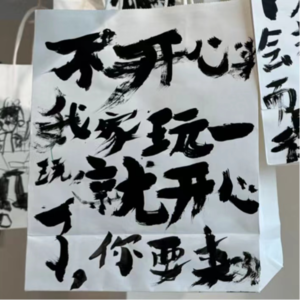 不开心
我家玩一
玩就开心
了,你要
会而